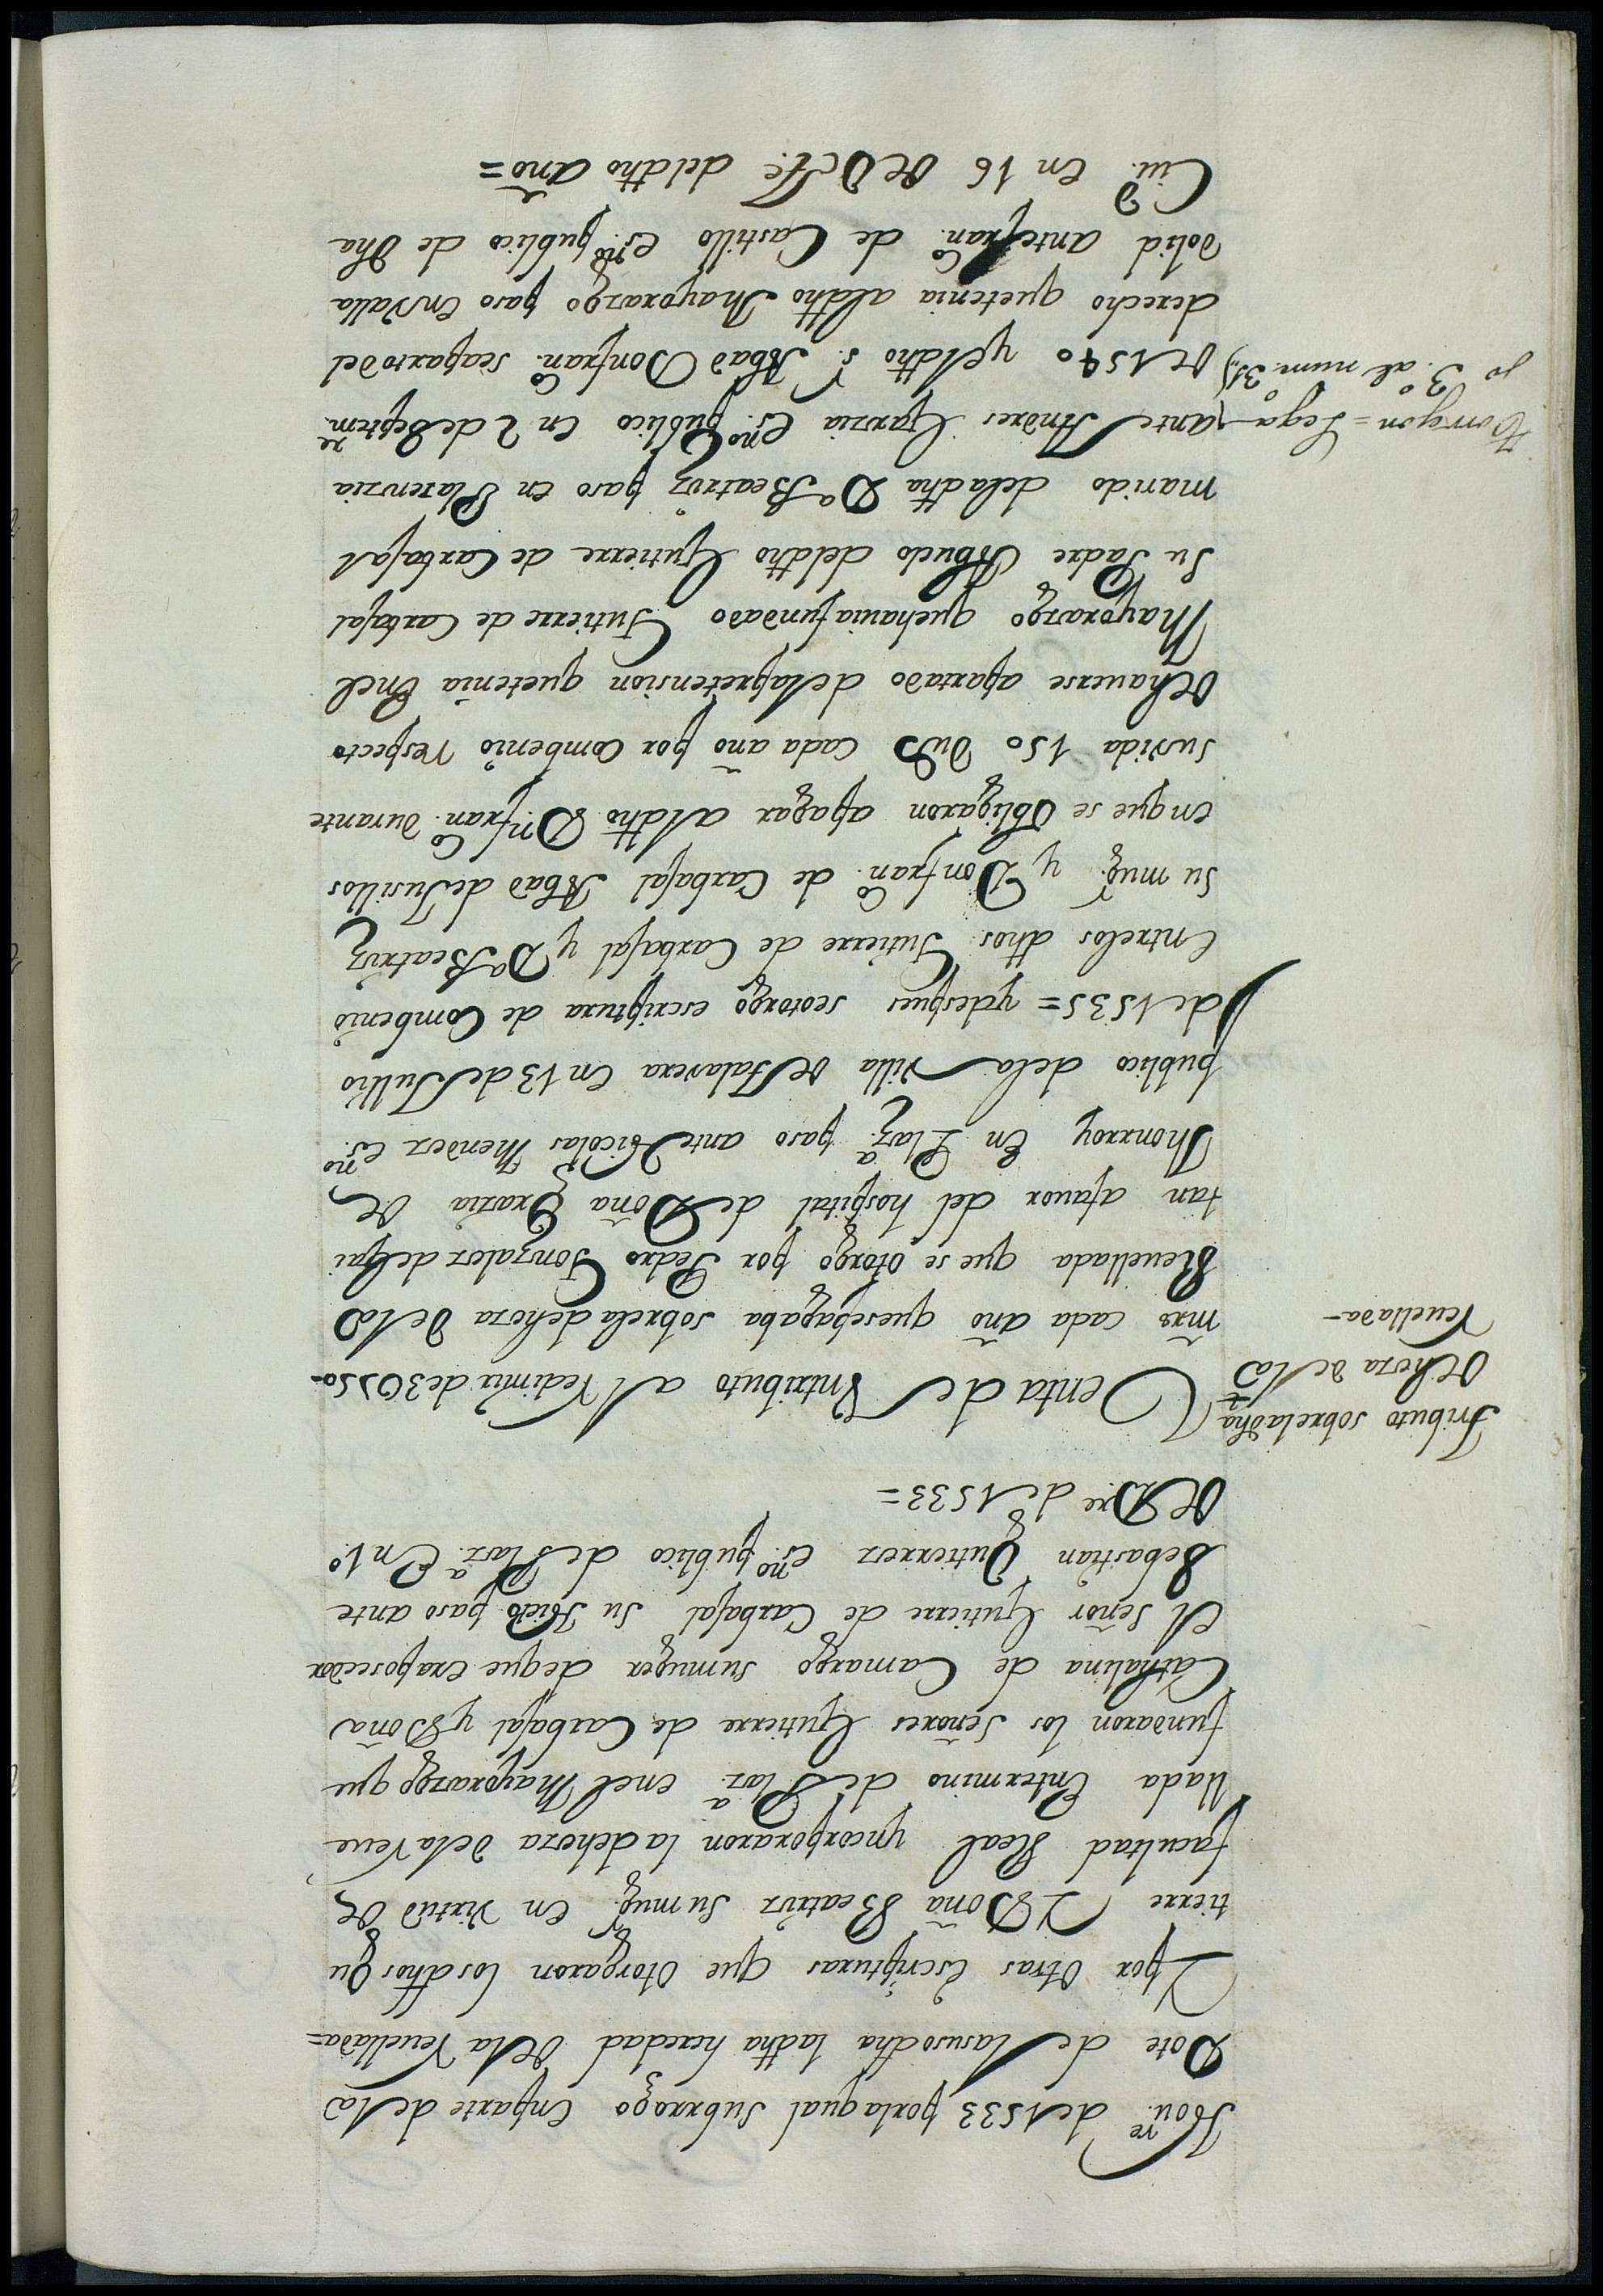 Nou.re de 1533 por la qual subrrogo en parte de la
Dote de la susodha la dha heredad de la Reuellada=
Y por otras escripturas que otorgaron los dhos Gu
tierre Y Doña Beatriz su mug.r en virtud de
facultad Real yncorporaron la dehesa de la Reue
llada En termino de Plaz.a en el Mayorazgo que
fundaron los señores Gutierre de Carbajal y Doña
Cathalina de Camargo su muger de que era poseedor
el señor Gutierre de Carbajal su Nieto paso ante
Sebastian Gutierrez es.no publico de Plaz.a En 1.o
de D.re de 1533=
Tributo sobre la dha
dehesa de la
Reuellada-
Venta de Vn tributo al Redimir de 30)50-
mrs cada año que se pagaba sobre la dehesa de la
Reuellada que se otorgo por Pedro Gonzalez de Gai
tan a fauor del hospital de Doña Grazia de
Monrroy en Plaz.a paso ante Nicolas Mendez es.no
publico de la villa de Talavera en 13 de Jullio
de 1535= y despues se otorgo escriptura de Combenio
entre los dhos Gutierre de Carbajal y D.a Beatriz
su mug.r y Don fran.co de Carbajal Abad de Jusillos
en que se obligaron a pagar al dho D.n fran.co durante
su vida 150 dus cada año por combenio respecto
de hauerse apartado de la pretension que tenia en el
Mayorazgo que hauia fundado Gutierre de Carbajal
su Padre Abuelo del dho Gutierre de Carbajal
marido de la dha D.a Beatriz paso en Plazenzia
ante Andres Garzia es.no publico en 2 de Septiem.re
Torrejon = Lega
jo 3.o al num. 31,,
de 1540 y el dho s.r Abad Don fran.co se aparto del
derecho que tenia al dho Mayorazgo paso en Valla
dolid ante fran.co de Castillo es.no publico de dha
Ciu.d en 16 de D del dho año=